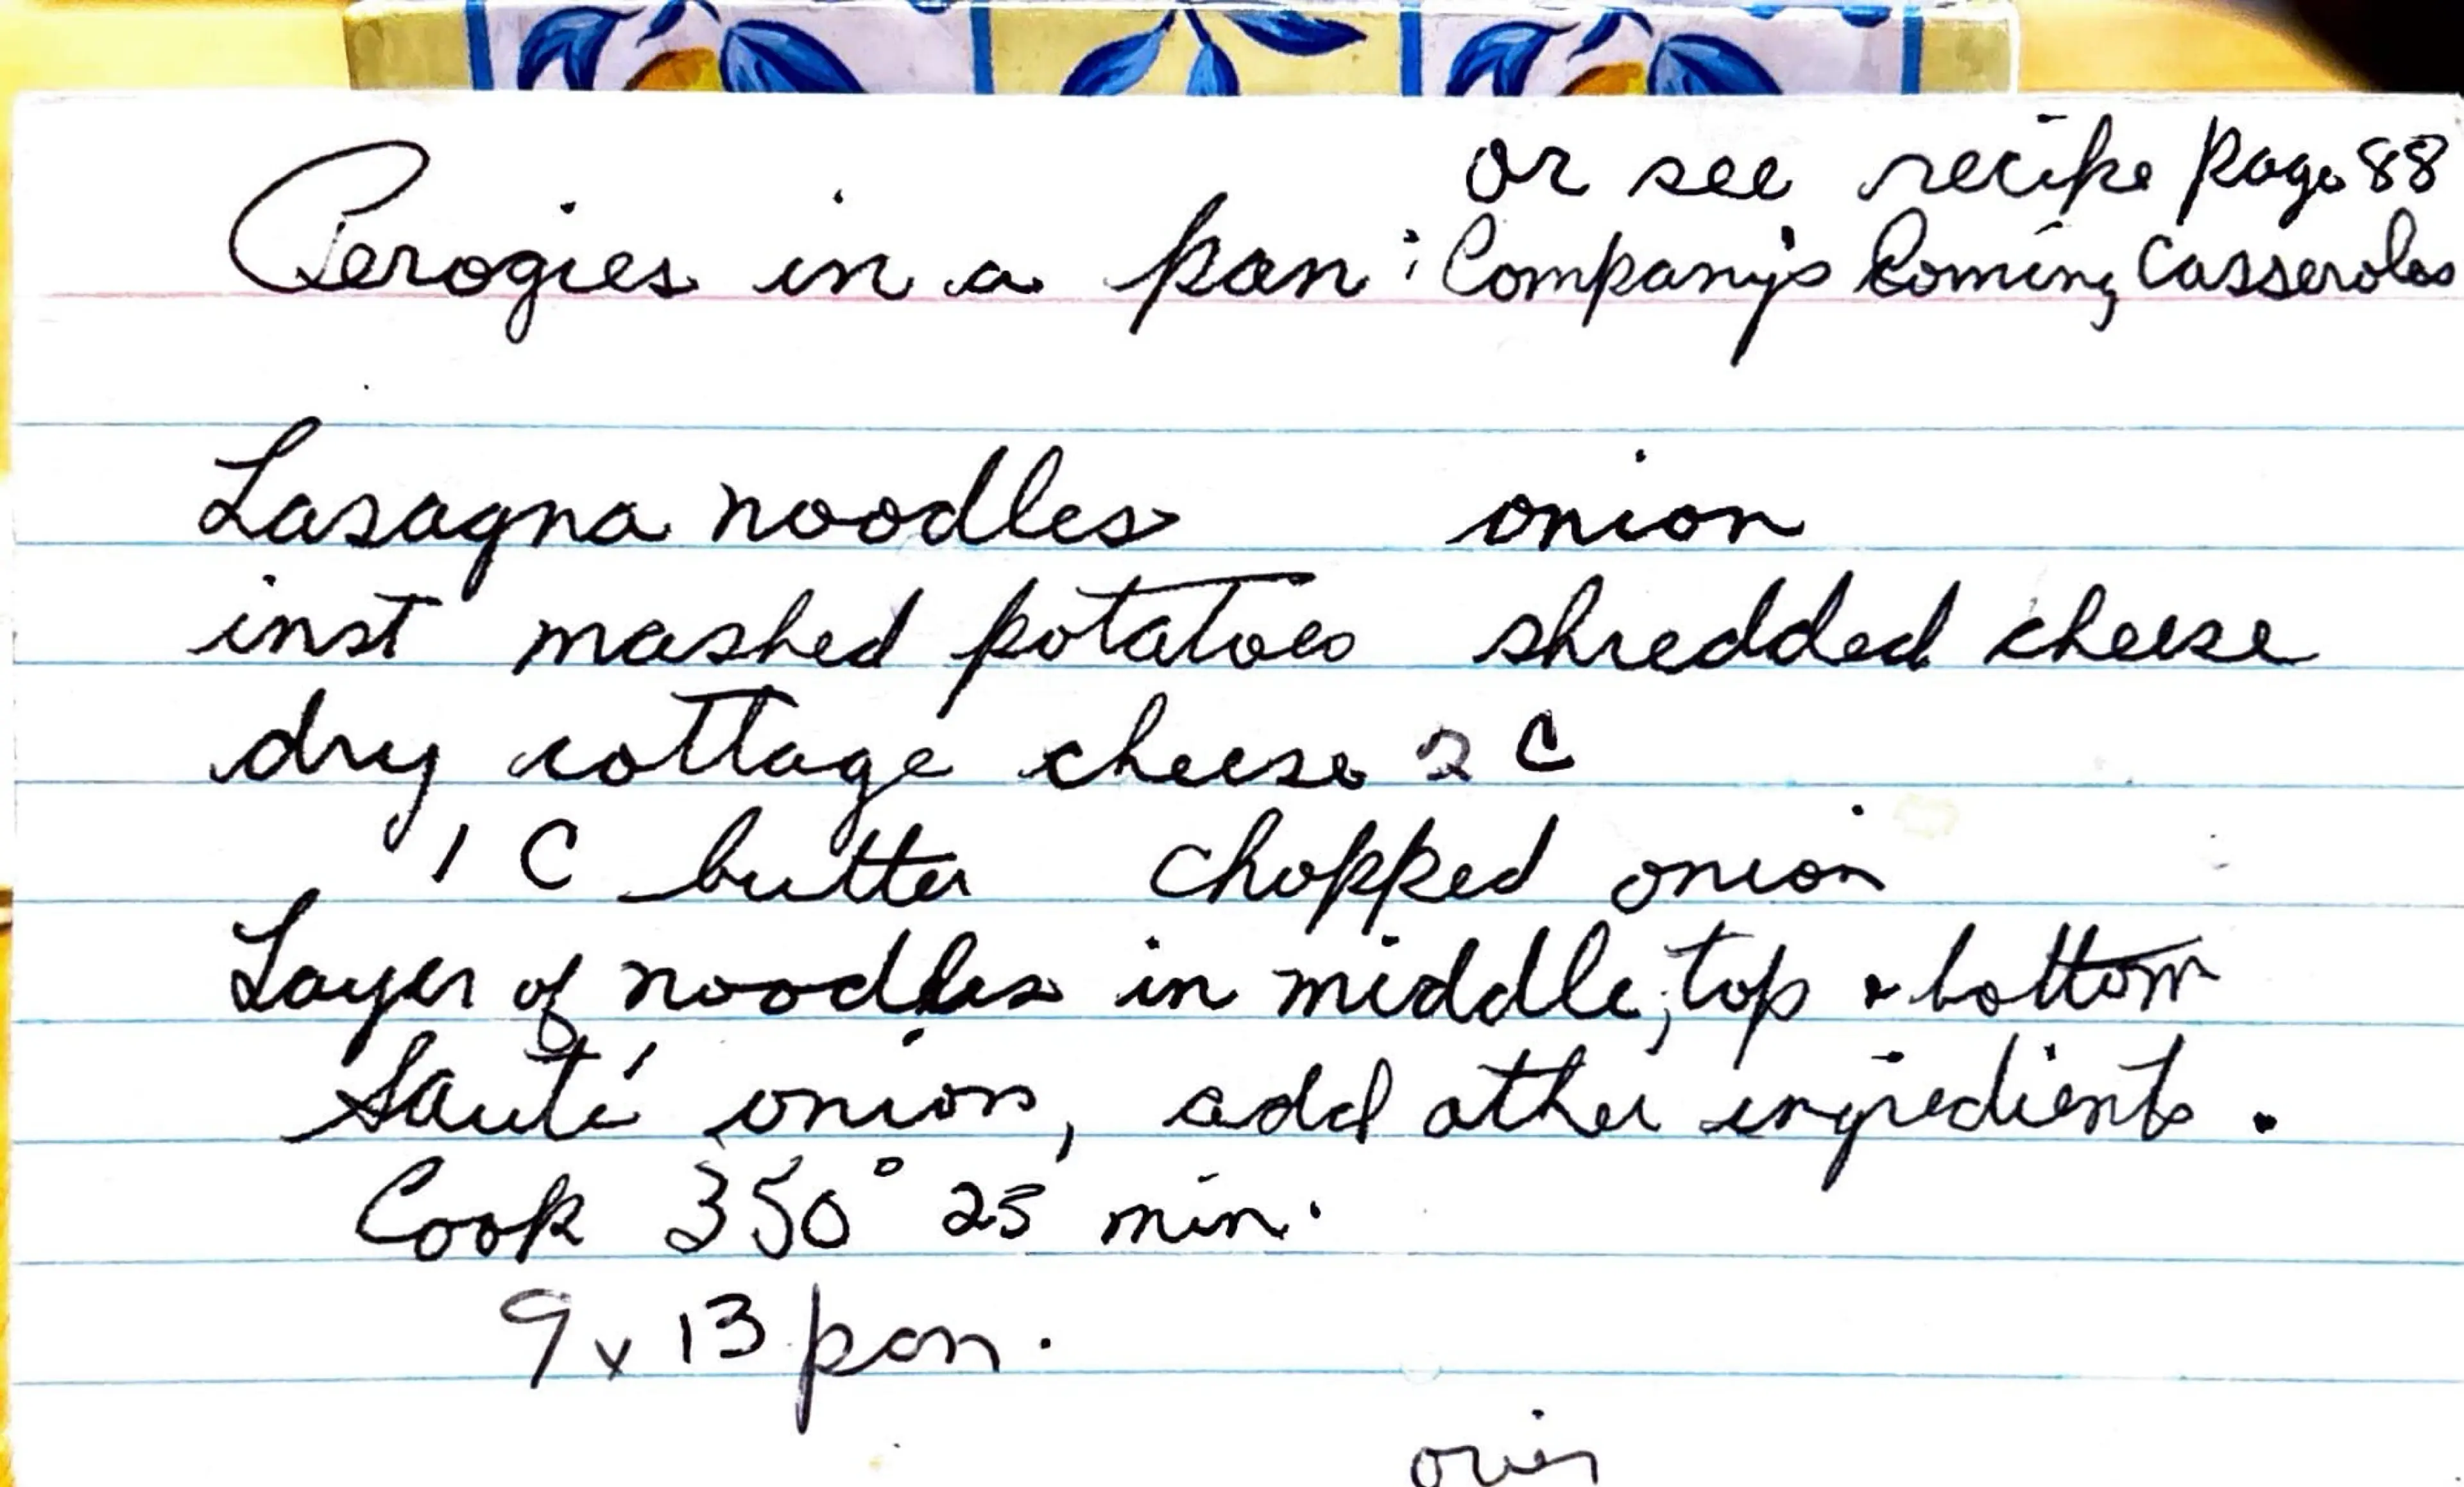 or see recipe page 88
Perogies in a pan : Company's Coming Casseroles
Lasagna noodles onion
inst mashed potatoes shredded cheese
dry cottage cheese 2 C
1 C butter chopped onion
Layer of noodles in middle, top & bottom
Sauté onions, add other ingredients.
Cook 350° 25 min.
9 x 13 pan.
over